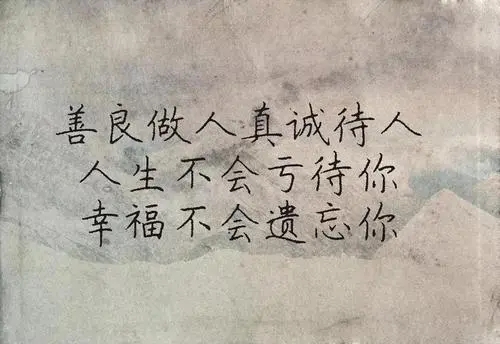 善良做人真诚待人
人生不会亏待你
幸福不会遗忘你